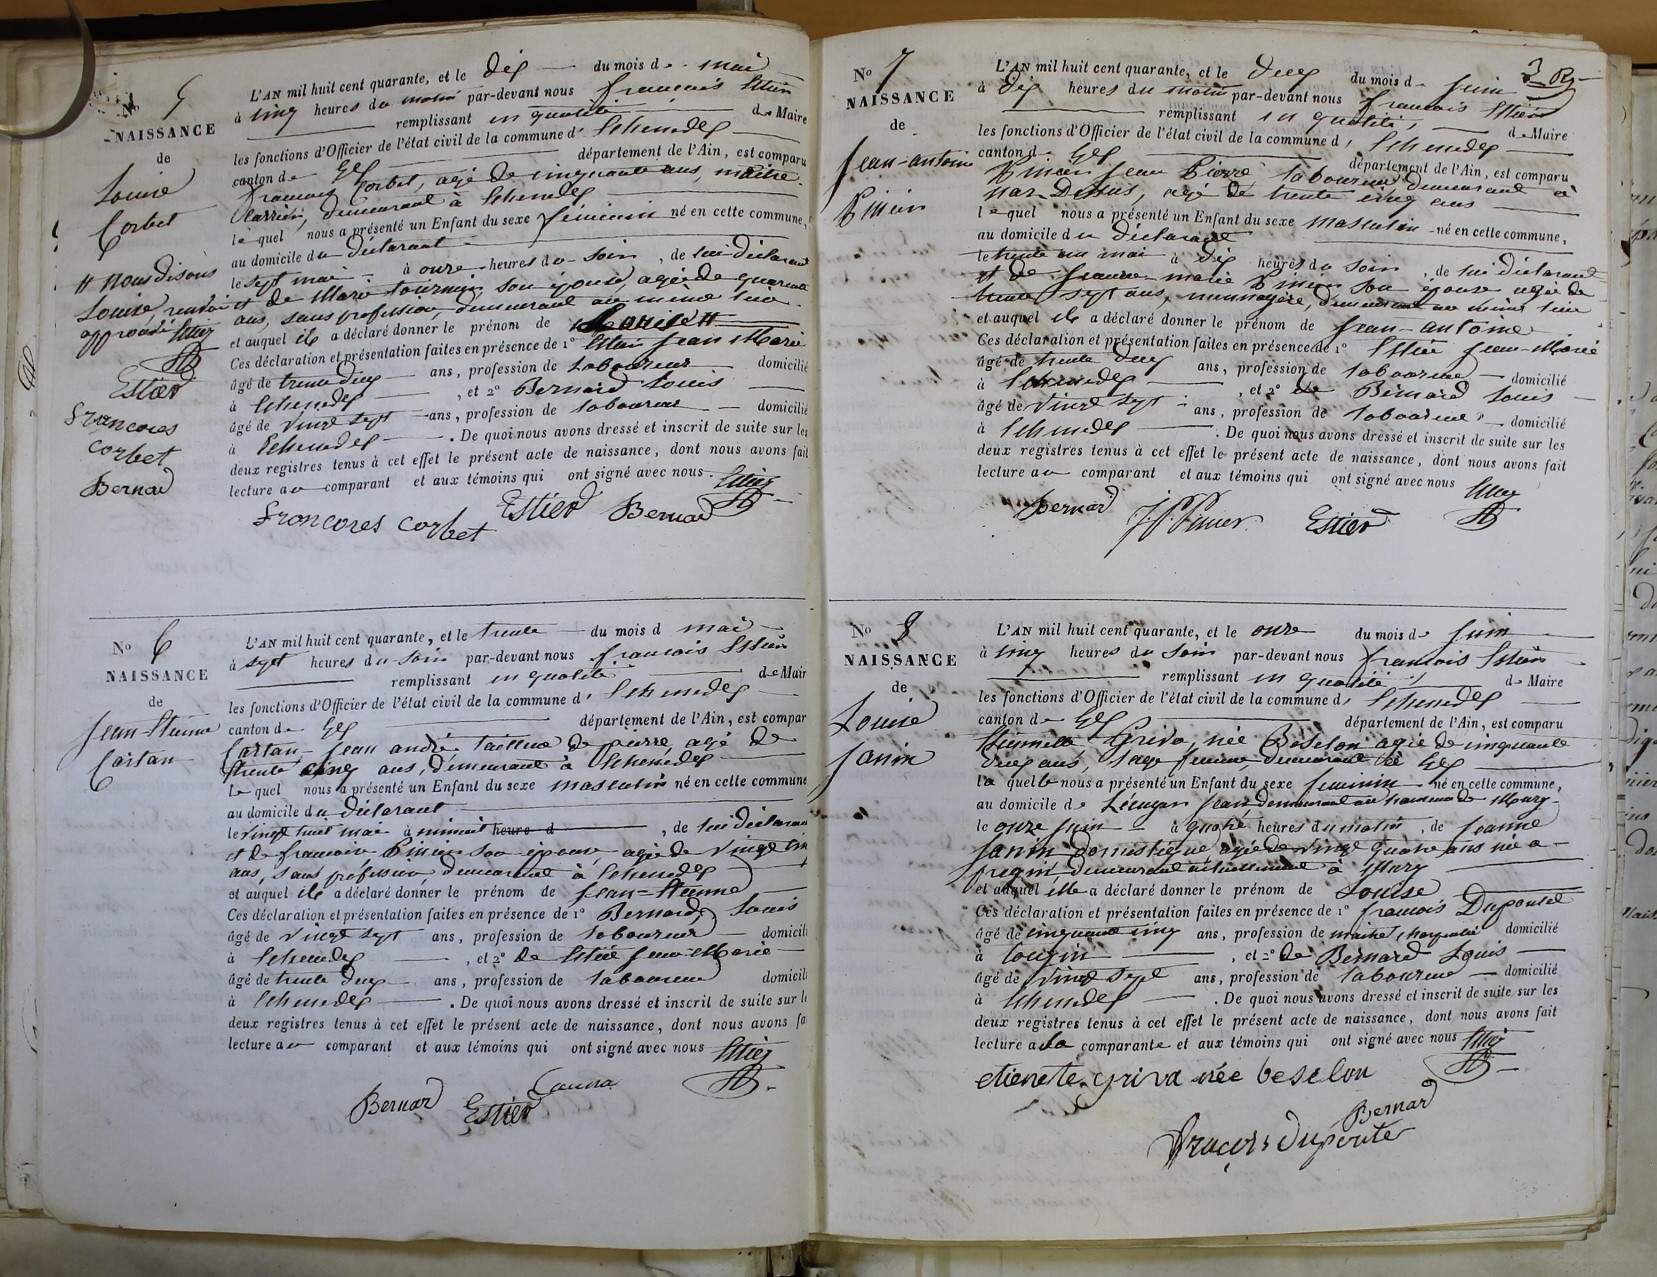 No 5
NAISSANCE
de
Louise
Corbet
# nous disons
Louise, renvoi
approuvé
Estier
Francores
corbet
Bernad
L'AN mil huit cent quarante, et le dix du mois de mai
à cinq heures du matin par-devant nous françois Estier
remplissant en qualité de Maire
les fonctions d'Officier de l'état civil de la commune d'Echenedex
canton de Gex département de l'Ain, est comparu
françois Corbet, agé de cinquante ans, maitre
Carrier, demeurant à Echenedex
lequel nous a présenté un Enfant du sexe féminin né en cette commune,
au domicile du déclarant
le sept mai à onze heures du soir, de lui déclarant
et de Marie tournier son épouse, agée de quarante
ans, sans profession, demeurant au même lieu
et auquel il a déclaré donner le prénom de #
Ces déclaration et présentation faites en présence de 1° Estier Jean Marie
âgé de trente deux ans, profession de laboureur domicilié
à Echenedex, et 2° Bernard Louis
âgé de vingt sept ans, profession de laboureur domicilié
à Echenedex. De quoi nous avons dressé et inscrit de suite sur les
deux registres tenus à cet effet le présent acte de naissance, dont nous avons fait
lecture au comparant et aux témoins qui ont signé avec nous
Francores corbet Estier Bernad
No 6
NAISSANCE
de
Jean-Etienne
Cartan
L'AN mil huit cent quarante, et le trente du mois d mai
à sept heures du soir par-devant nous françois Estier
remplissant en qualité de Mair
les fonctions d'Officier de l'état civil de la commune d'Echenedex
canton de Gex département de l'Ain, est compar
Cartan Jean andré tailleur de pierre, agé de
trente cinq ans, demeurant à Echenedex
Le quel nous a présenté un Enfant du sexe masculin né en cette commune
au domicile du déclarant
le vingt huit mai à minuit heure d, de lui déclarant
et de françoise Pinier son épouse, agée de vingt cinq
ans, sans profession, demeurant à Echenedex
et auquel il a déclaré donner le prénom de Jean-Etienne
Ces déclaration et présentation faites en présence de 1° Bernard Louis
âgé de vingt sept ans, profession de laboureur domicili
à Echenedex, et 2° de Estier Jean-Marie
âgé de trente deux ans, profession de laboureur domicili
à Echenedex. De quoi nous avons dressé et inscrit de suite sur l
deux registres tenus à cet effet le présent acte de naissance, dont nous avons fa
lecture au comparant et aux témoins qui ont signé avec nous
Bernad Estier
3
No 7
NAISSANCE
de
Jean-antoine
Pinier
L'AN mil huit cent quarante, et le deux du mois de Juin
à dix heures du matin par-devant nous françois Estier
remplissant en qualité, de Maire
les fonctions d'Officier de l'état civil de la commune d'Echenedex
canton de Gex département de l'Ain, est comparu
Pinier Jean Pierre laboureur demeurant à
Mar-Dessus, agé de trente cinq ans
lequel nous a présenté un Enfant du sexe masculin né en cette commune,
au domicile du déclarant
le trente un mai à dix heures du soir, de lui déclarant
et de Jeanne-marie Pinier son épouse agée de
trente sept ans, mennagère, demeurant au même lieu
et auquel il a déclaré donner le prénom de Jean-antoine
Ces déclaration et présentation faites en présence de 1° Estier Jean-Marie
âgé de trente deux ans, profession de laboureur domicilié
à Echenedex, et 2° de Bernard Louis
âgé de vingt sept ans, profession de laboureur domicilié
à Echenedex. De quoi nous avons dressé et inscrit de suite sur les
deux registres tenus à cet effet le présent acte de naissance, dont nous avons fait
lecture au comparant et aux témoins qui ont signé avec nous
Bernad J.P. Pinier Estier
No 8
NAISSANCE
de
Louise
Janin
L'AN mil huit cent quarante, et le onze du mois de Juin
à cinq heures du soir par-devant nous françois Estier
remplissant en qualité, de Maire
les fonctions d'Officier de l'état civil de la commune d'Echenedex
canton de Gex département de l'Ain, est comparu
Etiennette Griva, née Béselon agée de cinquante
deux ans, sage femme demeurant à Gex
la quelle nous a présenté un Enfant du sexe feminin né en cette commune,
au domicile de Jean, demeurant au hameau de Mury
le onze Juin à quatre heures du matin, de Jeanne
Janin domestique, agée de vingt quatre ans née a
demeurant actuellement à Mury
et auquel elle a déclaré donner le prénom de Louise
Ces déclaration et présentation faites en présence de 1° françois Dupontet
âgé de cinquante cinq ans, profession de maitre charpentier domicilié
à tougin, et 2° de Bernard Louis
âgé de vingt sept ans, profession de laboureur domicilié
à Echenedex. De quoi nous avons dressé et inscrit de suite sur les
deux registres tenus à cet effet le présent acte de naissance, dont nous avons fait
lecture a la comparante et aux témoins qui ont signé avec nous
etienete griva née beselon
Bernad